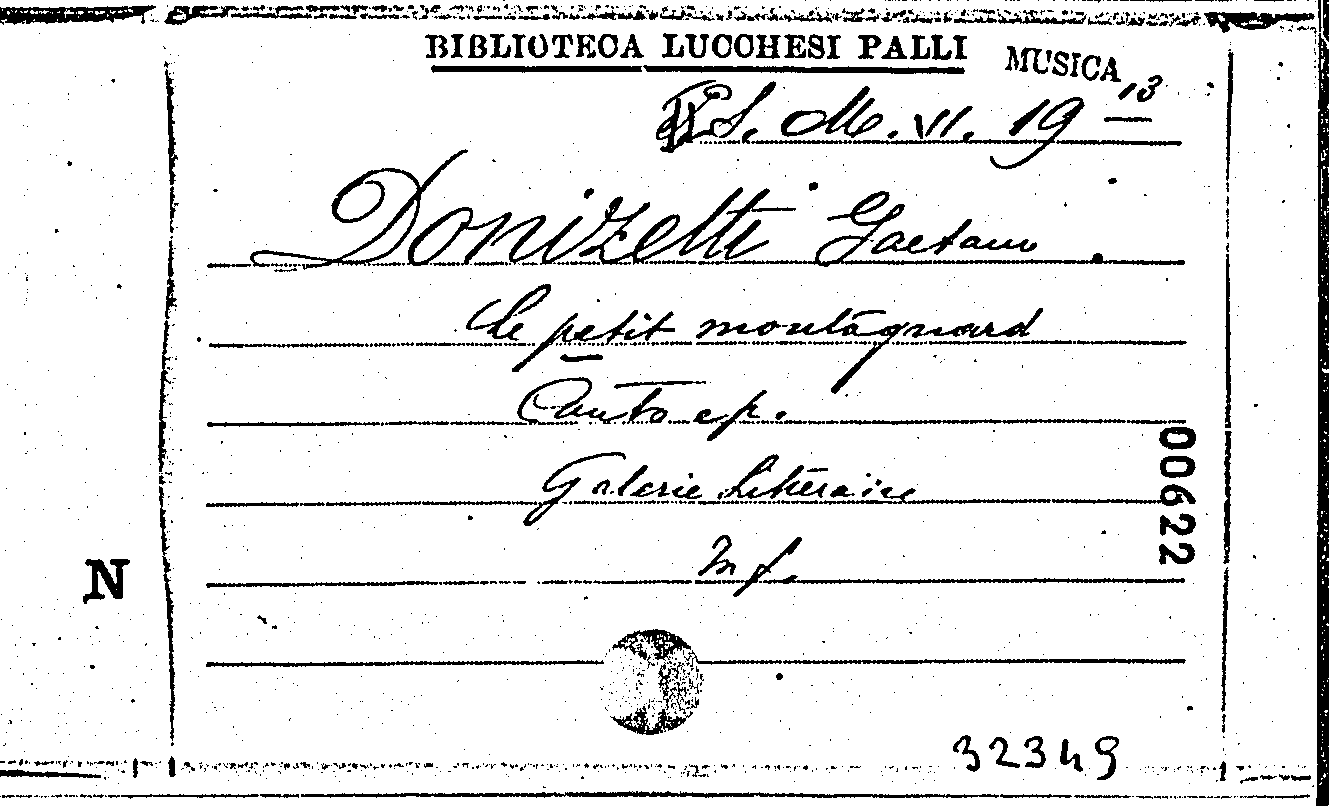 BIBLIOTECA LUCCHESI PALLI MUSICA
S. M. VI. 19 13
Donizetti Gaetano.
Le petit montagnard
Canto e p.
Galerie Litéraire
In f.
00622
N
32349